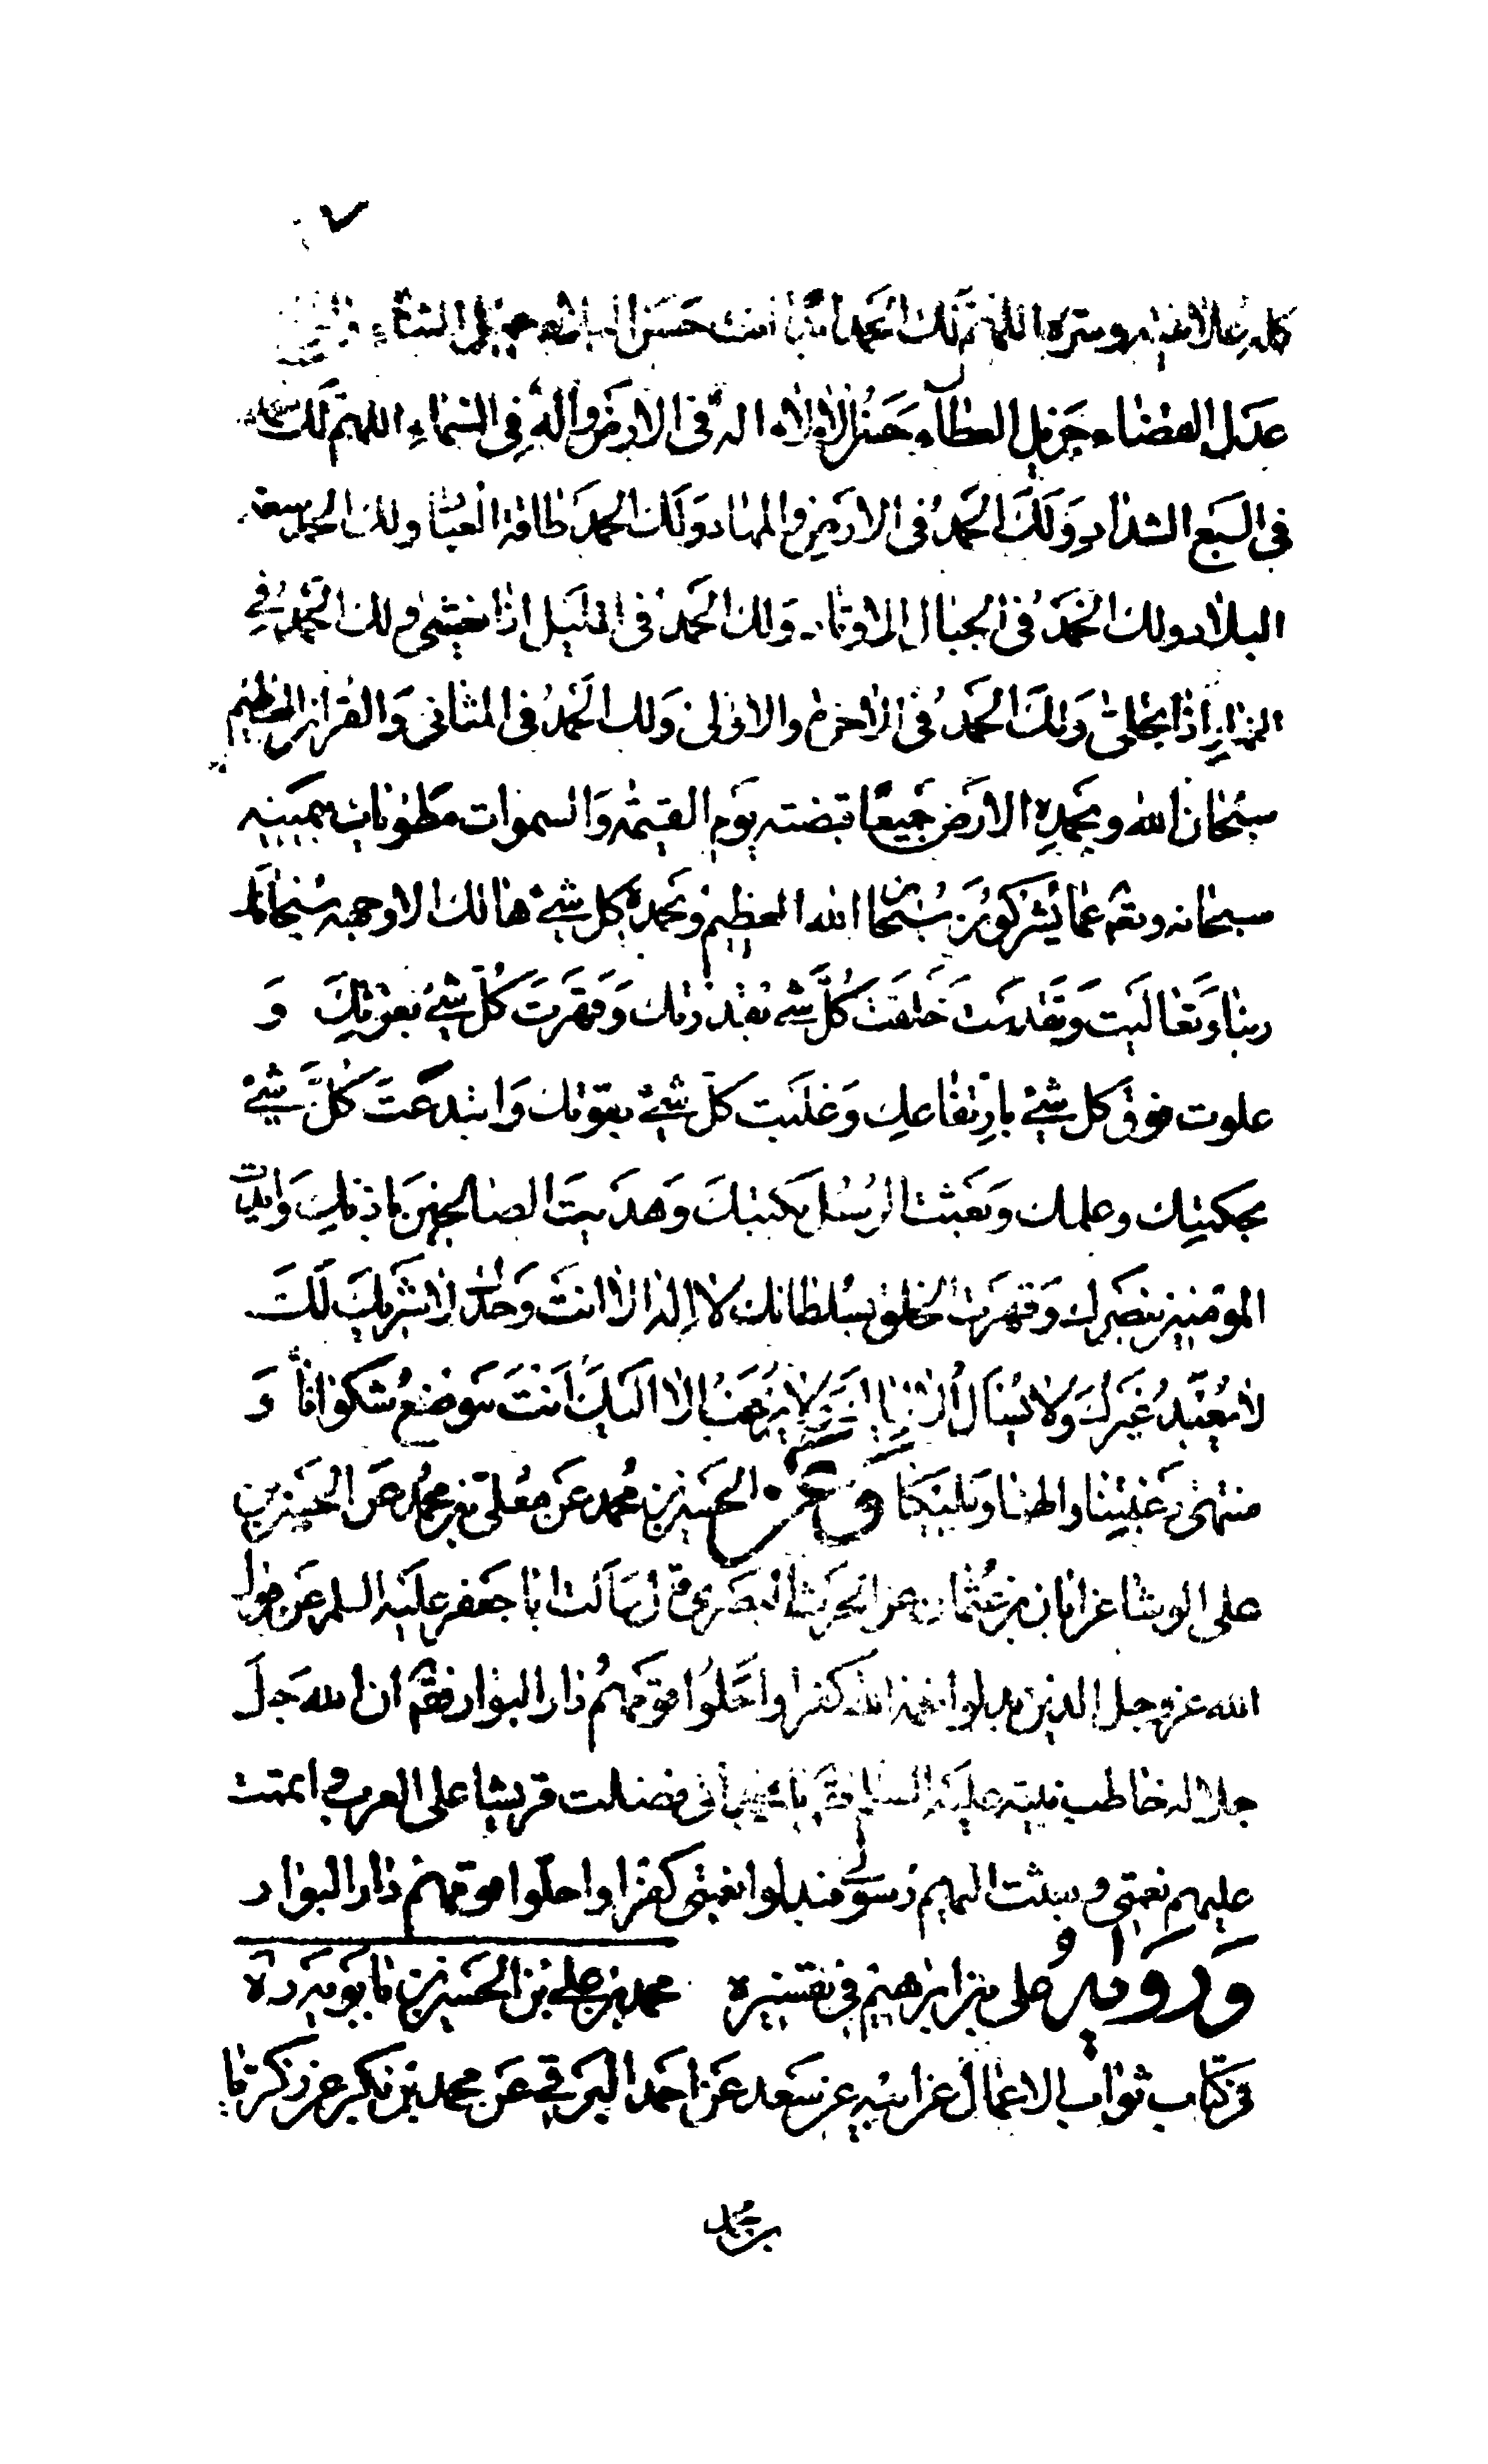 ٧
كله علانيته وسره اللهم لك الحمد انت حسن البلاء جليل الثناء
عدل القضاء جزيل العطاء حسن الالاء اله فى الارض واله فى السماء اللهم لك
فى السبع الشداد ولك الحمد فى الارض المهاد ولك الحمد طاقة العباد ولك الحمد سعة
البلاد ولك الحمد فى الجبال الاوتاد ولك الحمد فى الليل اذا يغشى ولك الحمد فى
النهار اذا تجلى ولك الحمد فى الاخرة والاولى ولك الحمد فى المثانى والقران العظيم
سبحان الله وبحمده الارض جميعا قبضته يوم القيمة والسموات مطويات بيمينه
سبحانه وتعـ عما يشركون سبحان الله العظيم وبحمده كل شئ هالك الا وجهه سبحانك
ربنا وتعاليت وتقدست خلقت كل شئ بقدرتك وقهرت كل شئ بعزتك و
علوت فوق كل شئ بارتفاعك وغلبت كل شئ بقوتك وابتدعت كل شئ
بحكمتك وعلمك وبعثت الرسل بكتبك وهديت الصالحين باذنك وايدت
المؤمنين بنصرك وقهرت الخلق بسلطانك لا اله الا انت وحدك لا شريك لك
لا نعبد غيرك ولا نسئل الا اياك ولا نرغب الا اليك انت موضع شكوانا و
منتهى رغبتنا والهنا ومليكنا وعن الحسين بن محمد عن معلى بن محمد عن الحسن بن
على الوشا عن ابان بن عثمان عن الحرث البصرى قال سالت ابا جعفر عليه السلم عن قول
الله عز وجل الذين بدلوا نعمة الله كفرا واحلوا قومهم دار البوار فقـ ان الله جل
جلاله خاطب نبيه عليه السلم فقـ يا محمد انى فضلت قريشا على العرب واتممت
عليهم نعمتى وبعثت اليهم رسولى فبدلوا نعمتى كفرا واحلوا قومهم دار البوار
ورواه على بن ابرهيم فى تفسيره محمد بن على بن الحسين بن بابويه ره
فى كتاب ثواب الاعمال عن ابيه عن سعد عن احمد البرقى عن محمد بن بكر عن زكريا
بن محمد